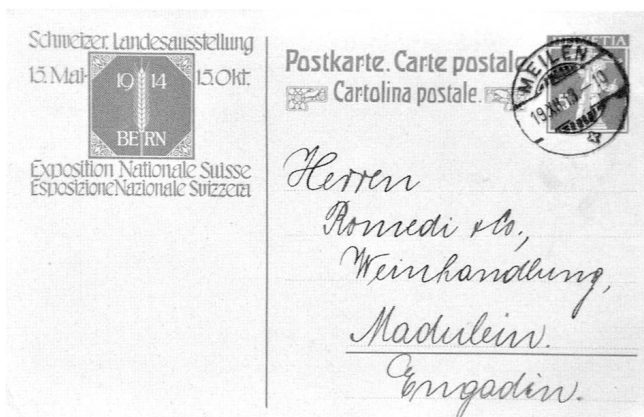 Schweizer. Landesausstellung
15. Mai 15. Okt.
19 14
BERN
Exposition Nationale Suisse
Esposizione Nazionale Svizzera
Postkarte. Carte postale.
Cartolina postale.
HELVETIA
MEILEN
Herren
Romedi & Co.,
Weinhandlung,
Madulein.
Engadin.